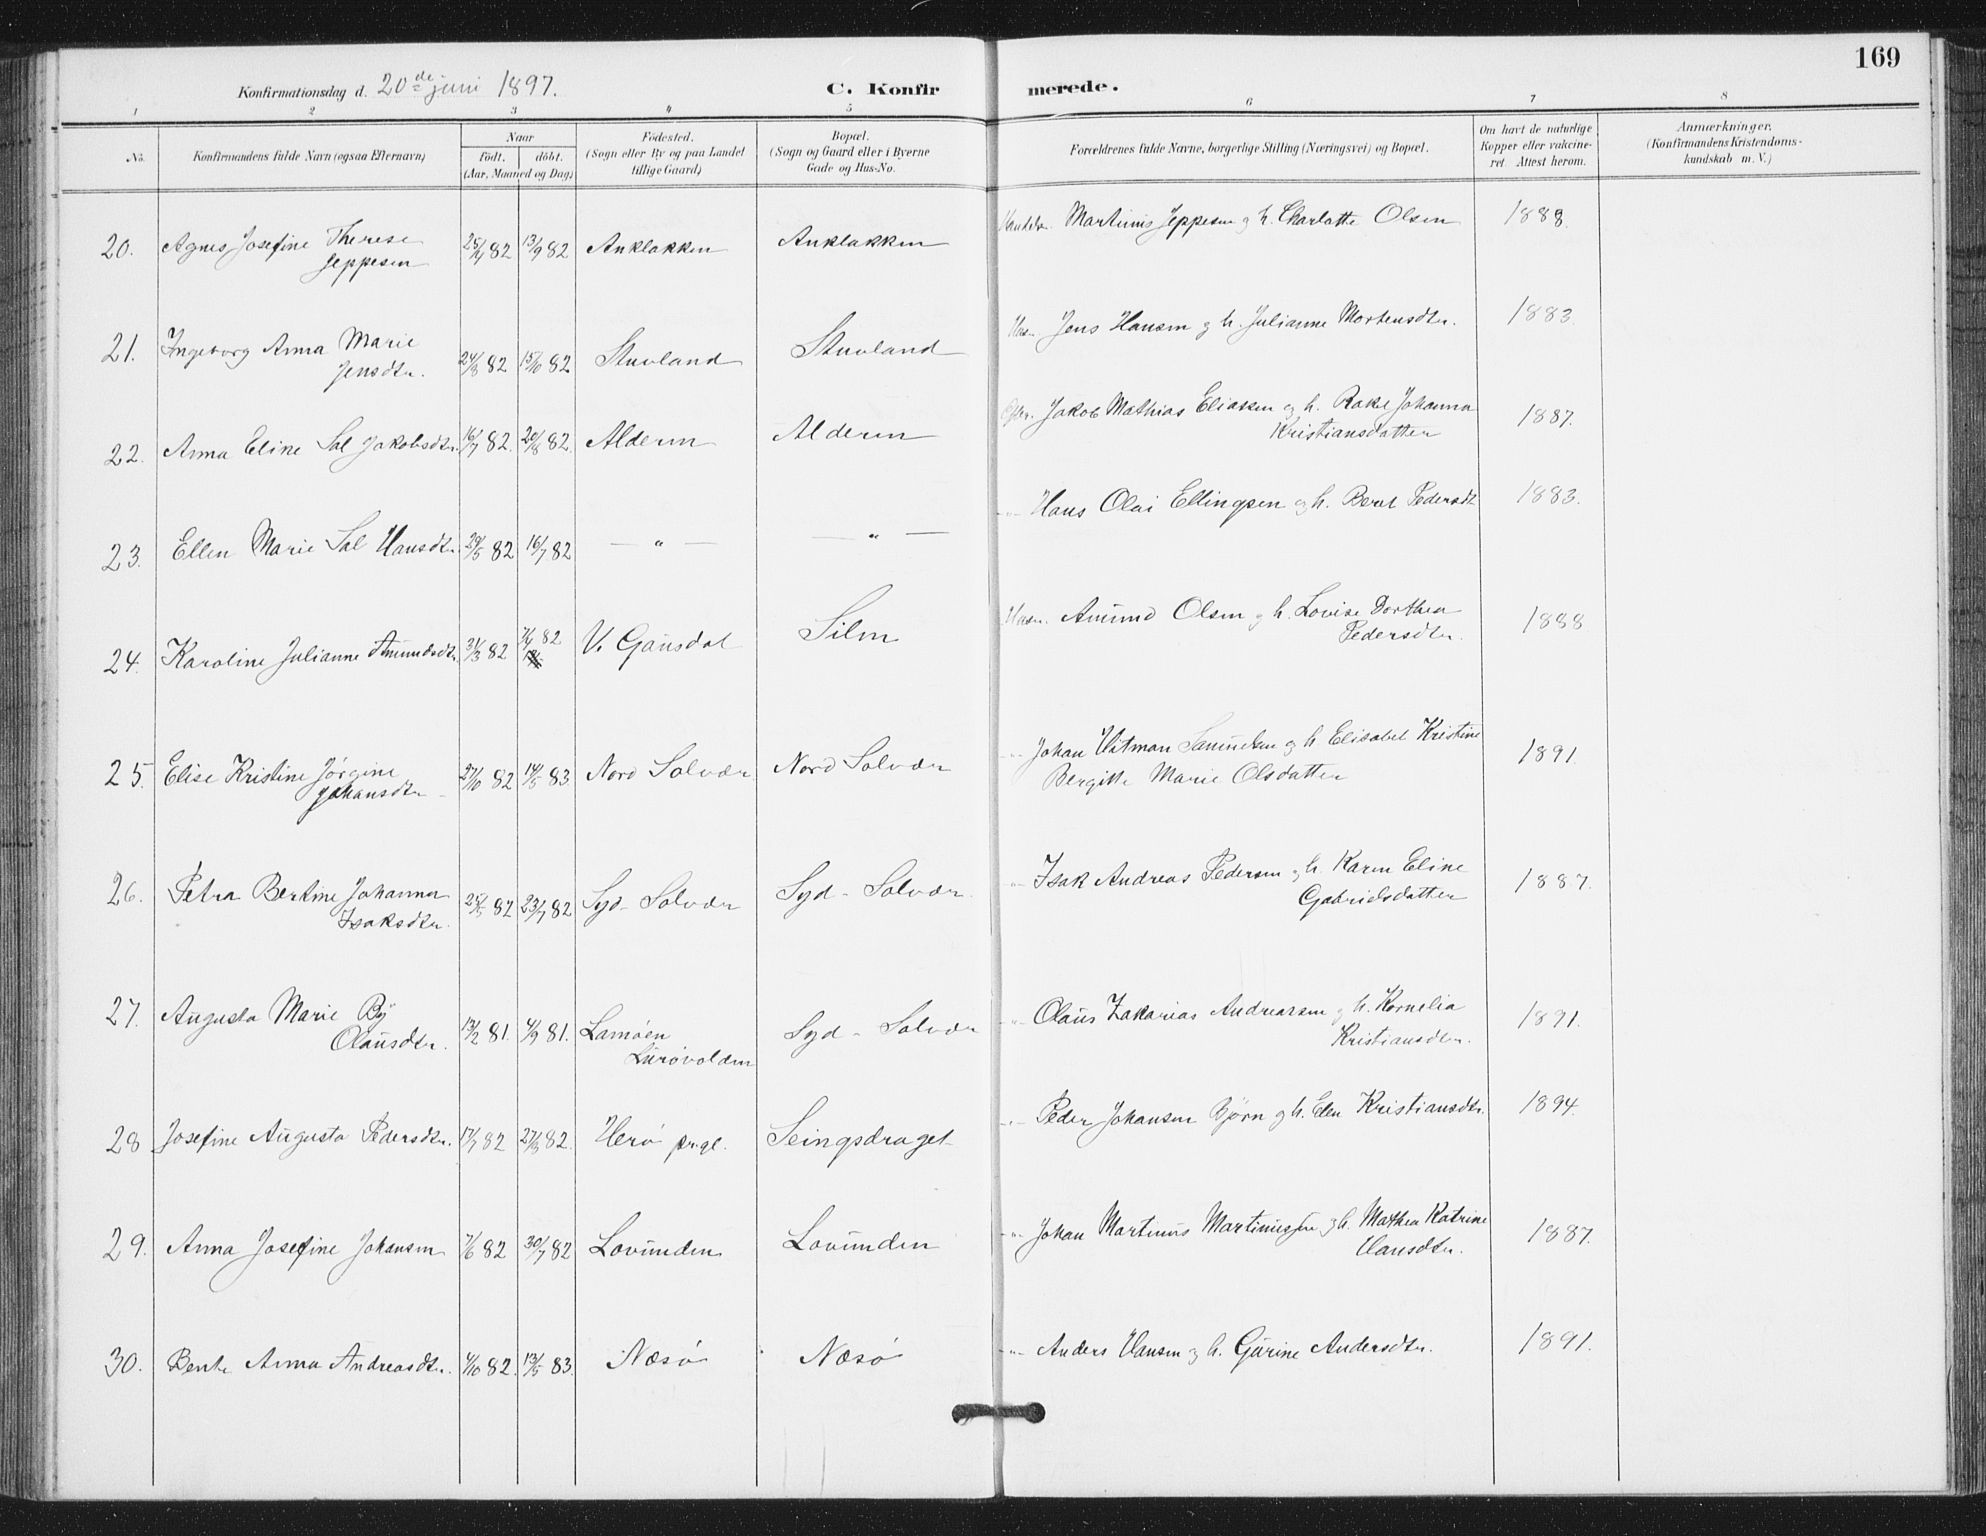 169
Konfirmationsdag d. 20de juni 1897.
C. Konfirmerede.
1 2 3 4 5 6 7 8
No. Konfirmandens fulde Navn (ogsaa Efternavn) Naar födt. döbt. (Aar, Maaned og Dag) Födested. (Sogn eller By og paa Landet tillige Gaard) Bopæl. (Sogn og Gaard eller i Byerne Gade og Hus-No. Forældrenes fulde Navne, borgerlige Stilling (Næringsvei) og Bopæl. Om havt de naturlige Kopper eller vakcineret. Attest herom. Anmærkninger. (Konfirmandens Kristendomskundskab m. V.)
20. Agnes Josefine Therese 25/4 82 13/9 82 Anklakken Anklakken Martinus Jeppesen g h. Charlotte Olsen 1888.
Jeppesen
21. Ingeborg Anna Marie 24/8 82 15/10 82 Stuvland Stuvland Jens Hansen g h. Julianne Mortensdtr. 1883.
Jensdtr.
22. Anna Eline Sal Jakobsdtr. 16/7 82. 20/8 82. Alderen Alderen Jakob Mathias Eliassen og h. Rakel Johanna 1887.
Kristiansdatter
23. Ellen Marie Sal Hansdtr. 29/5 82 16/7 82 — " — — " — -"- Hans Olai Ellingsen og h. Beret Pedersdt 1883.
24. Karoline Julianne Amundsdtr. 31/3 82 7/4 82 V. Gausdal Silen Amund Olsen g h. Lovise Dorthea 1888
Pedersdtr.
25. Elise Kristine Jörgine 27/10 82 14/5 83 Nord Solvær Nord Solvær -"- Johan Vitman Samuelsen og h. Elisabet Kristine 1891
Johansdtr Bergitte Marie Olsdatter
26. Petra Bertine Johanna 25/5 82 23/7 82 Syd-Solvær Syd-Solvær. -"- Isak Andreas Pedersen g h. Karen Eline 1887.
Isaksdtr. Gabrielsdatter
27. Augusta Marie By 13/2 81. 4/9 81. Lamøen Syd-Solvær -"- Claus Zakarias Andreassen g h. Kornelia 1891.
Olausdtr. Lurøvolden Kristiansdtr.
28 Josefine Augusta Pedersdtr. 17/7 82 27/8 82. Herø prgl. Seingsdraget -"- Peder Johansen Bjørn g h. Elen Kristiansdtr. 1894.
29. Anna Josefine Johansen 7/6 82 30/7 82 Lovunden Lovunden -"- Johan Martinus Martinussen g h. Mathea Katrine 1887.
Hansdtr.
30. Bente Anna Andreasdtr. 4/10 82. 13/5 83. Næsø Næsø -"- Anders Hansen og h. Gurine Andersdtr. 1891.